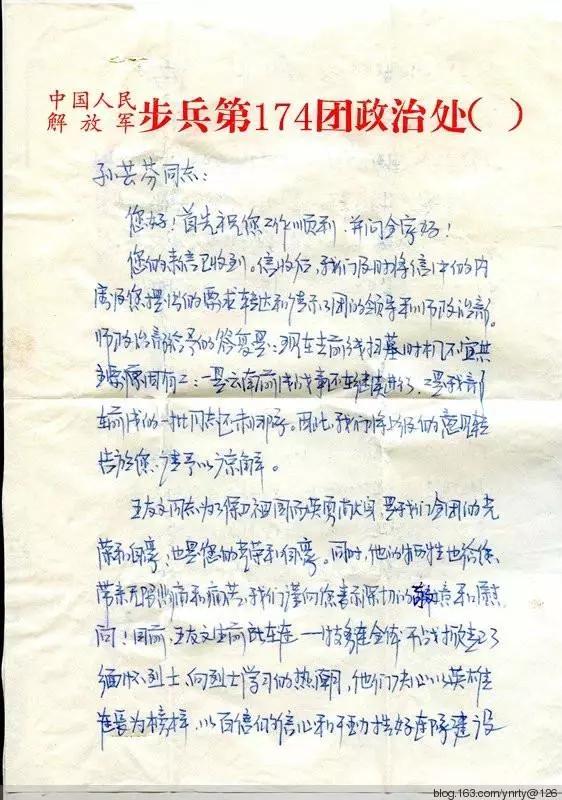 中国人民
解放军 步兵第174团政治处( )
孙芸芬同志:
您好!首先祝您工作顺利,并问全家好!
您的来信已收到。信收后,我们及时将信中的内
容及您提出的要求转达和请示了团的领导和师政治部。
师政治部给予的答复是:现在去前线扫墓时机不宜,其
主要原因有二:一是云南前线战事还在继续进行,二是我部
在前线的一批同志还未归来。因此,我们将上级的意见转
告于您,请予以谅解。
王友文同志为了保卫祖国而英勇献身,是我们全团的光
荣和自豪,也是您的光荣和自豪。同时,他的牺牲也给您
带来无限悲痛和痛苦,我们谨向您表示深切的敬意和慰
问!目前,王友文生前所在连 一 连全体干战掀起了
缅怀烈士,向烈士学习的热潮,他们决心以英雄
连长为榜样,以百倍的信心和干劲搞好连队建设
blog.163.com/ynrty@126